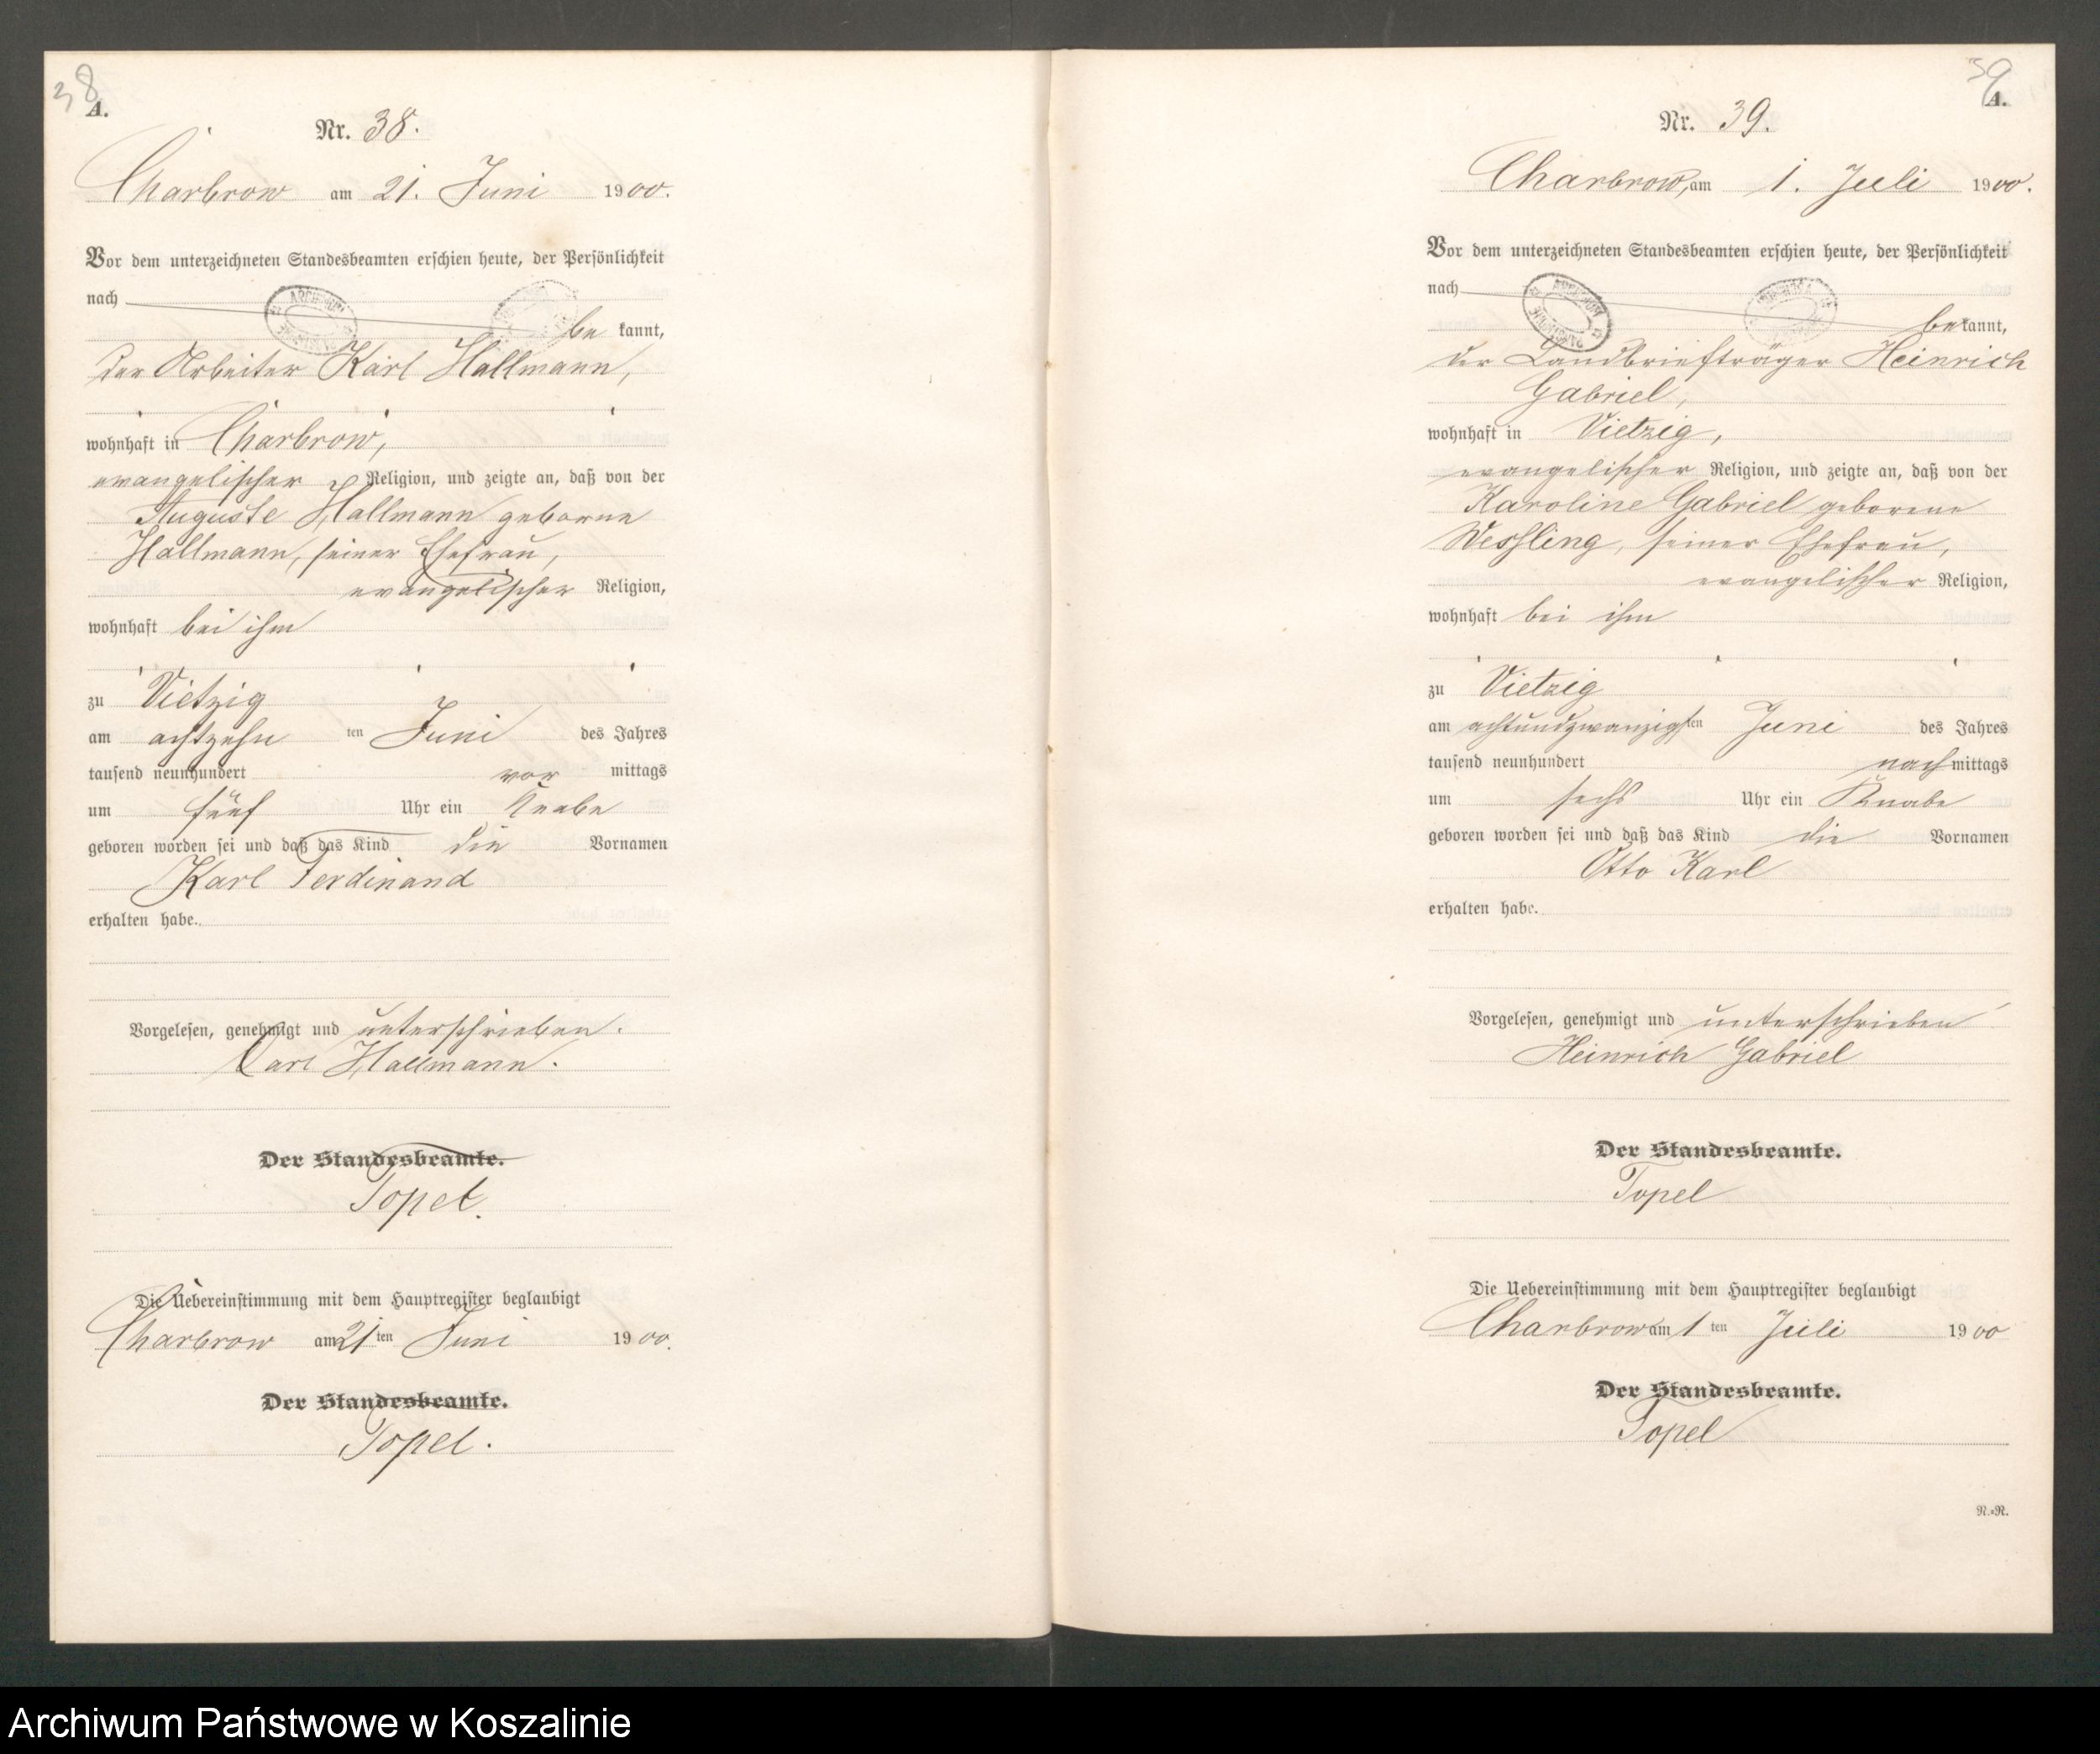 38
A.
Nr. 38.
Charbrow am 21. Juni 1900.
Vor dem unterzeichneten Standesbeamten erschien heute, der Persönlichkeit
nach
be kannt,
der Arbeiter Karl Hallmann,
wohnhaft in Charbrow,
evangelischer Religion, und zeigte an, daß von der
Auguste Hallmann geborne
Hallmann, seiner Ehefrau,
evangelischer Religion,
wohnhaft bei ihm
zu Vietzig
am achtzehn ten Juni des Jahres
tausend neunhundert vor mittags
um fünf Uhr ein Knabe
geboren worden sei und daß das Kind die Vornamen
Karl Ferdinand
erhalten habe.
Vorgelesen, genehmigt und unterschrieben.
Carl Hallmann.
Der Standesbeamte.
Topel.
Die Uebereinstimmung mit dem Hauptregister beglaubigt
Charbrow am 21 ten Juni 1900.
Der Standesbeamte.
Topel.
39
A.
Nr. 39.
Charbrow, am 1. Juli 1900.
Vor dem unterzeichneten Standesbeamten erschien heute, der Persönlichkeit
nach
be kannt,
der Landbriefträger Heinrich
Gabriel,
wohnhaft in Vietzig,
evangelischer Religion, und zeigte an, daß von der
Karoline Gabriel geborene
Wessling, seiner Ehefrau,
evangelischer Religion,
wohnhaft bei ihm
zu Vietzig
am achtundzwanzigsten Juni des Jahres
tausend neunhundert nach mittags
um sechs Uhr ein Knabe
geboren worden sei und daß das Kind die Vornamen
Otto Karl
erhalten habe.
Vorgelesen, genehmigt und unterschrieben
Heinrich Gabriel
Der Standesbeamte.
Topel
Die Uebereinstimmung mit dem Hauptregister beglaubigt
Charbrow am 1 ten Juli 1900
Der Standesbeamte.
Topel
R.=R.
Archiwum Państwowe w Koszalinie